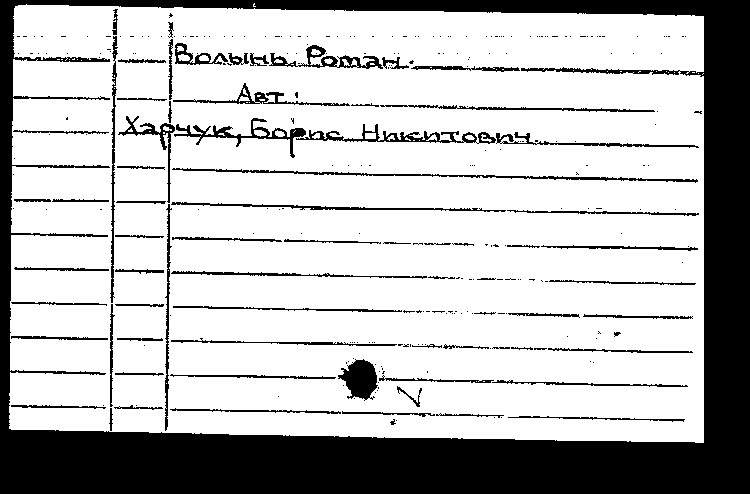 Волынь. Роман.
Авт.:
Харчук, Борис Никитович.